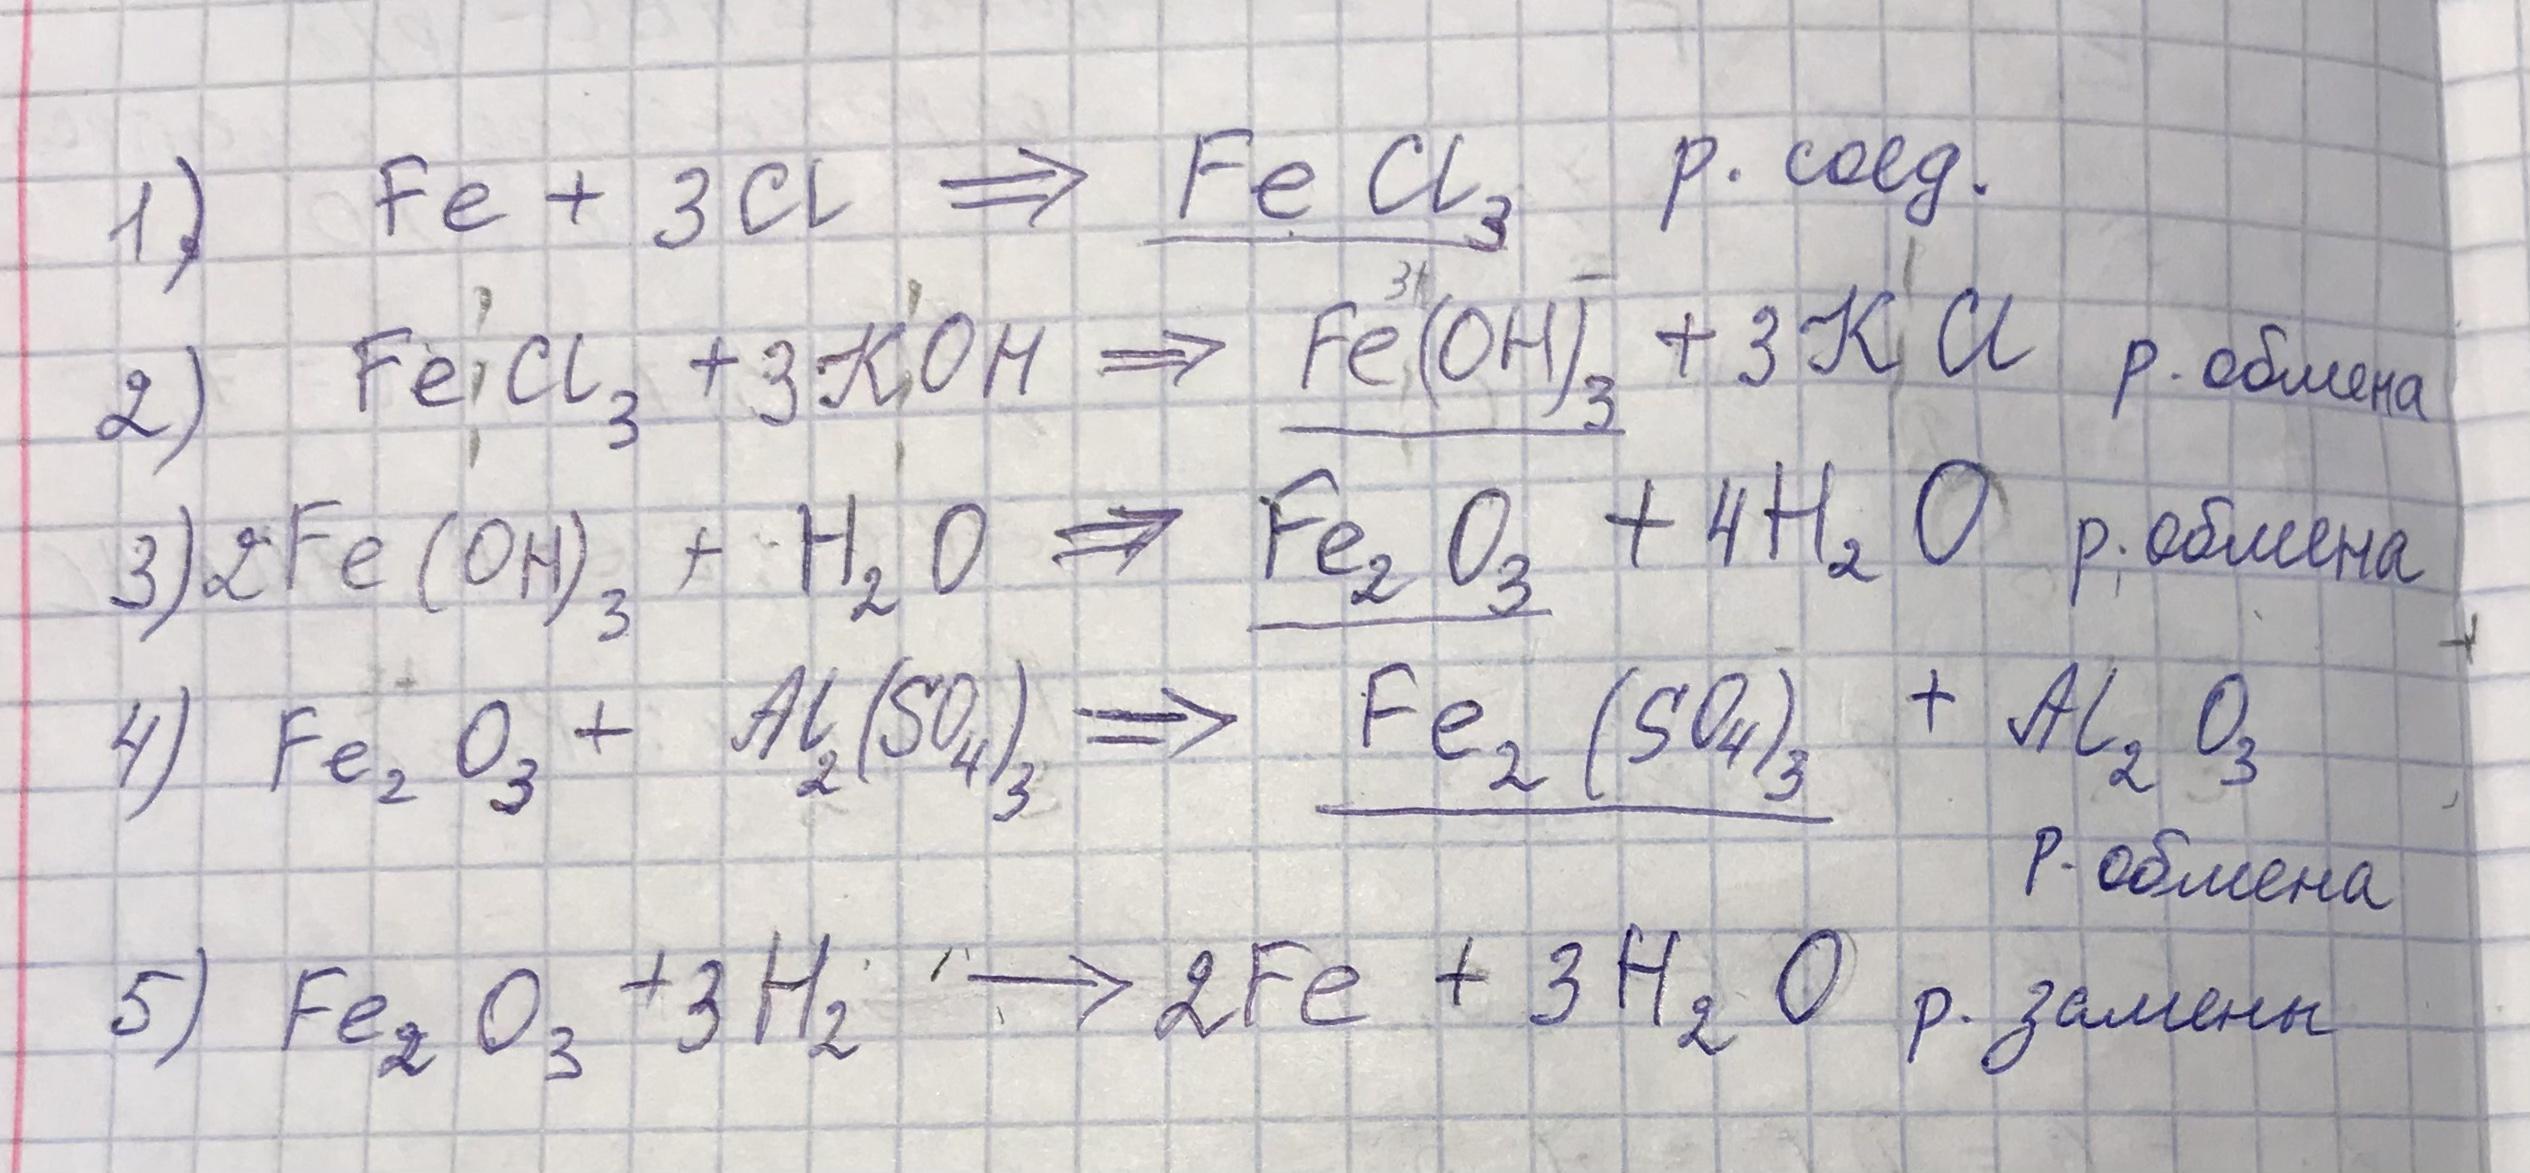 1) Fe + 3Cl ⇒ FeCl₃ р. соед.
2) FeCl₃ + 3KOH ⇒ Fe³⁺(OH)⁻₃ + 3KCl р. обмена
3) 2Fe(OH)₃ + H₂O ⇒ Fe₂O₃ + 4H₂O р. обмена
4) Fe₂O₃ + Al₂(SO₄)₃ ⇒ Fe₂(SO₄)₃ + Al₂O₃
р. обмена
5) Fe₂O₃ + 3H₂ → 2Fe + 3H₂O р. замены